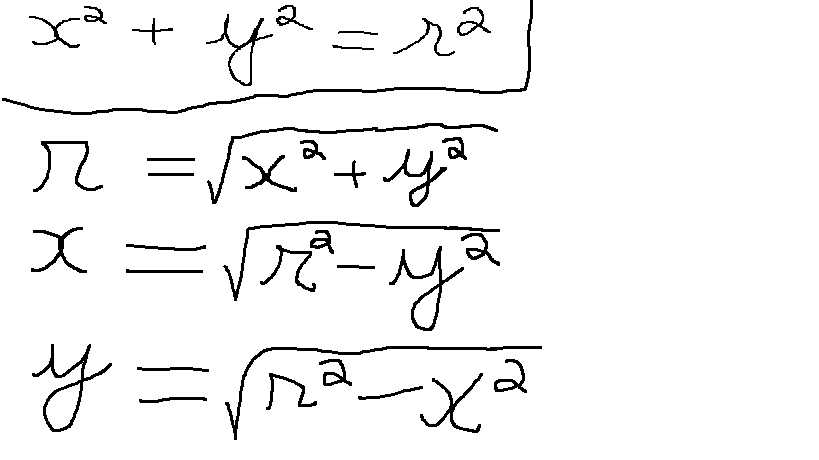 x² + y² = r²
r = √(x² + y²)
x = √(r² − y²)
y = √(r² − x²)